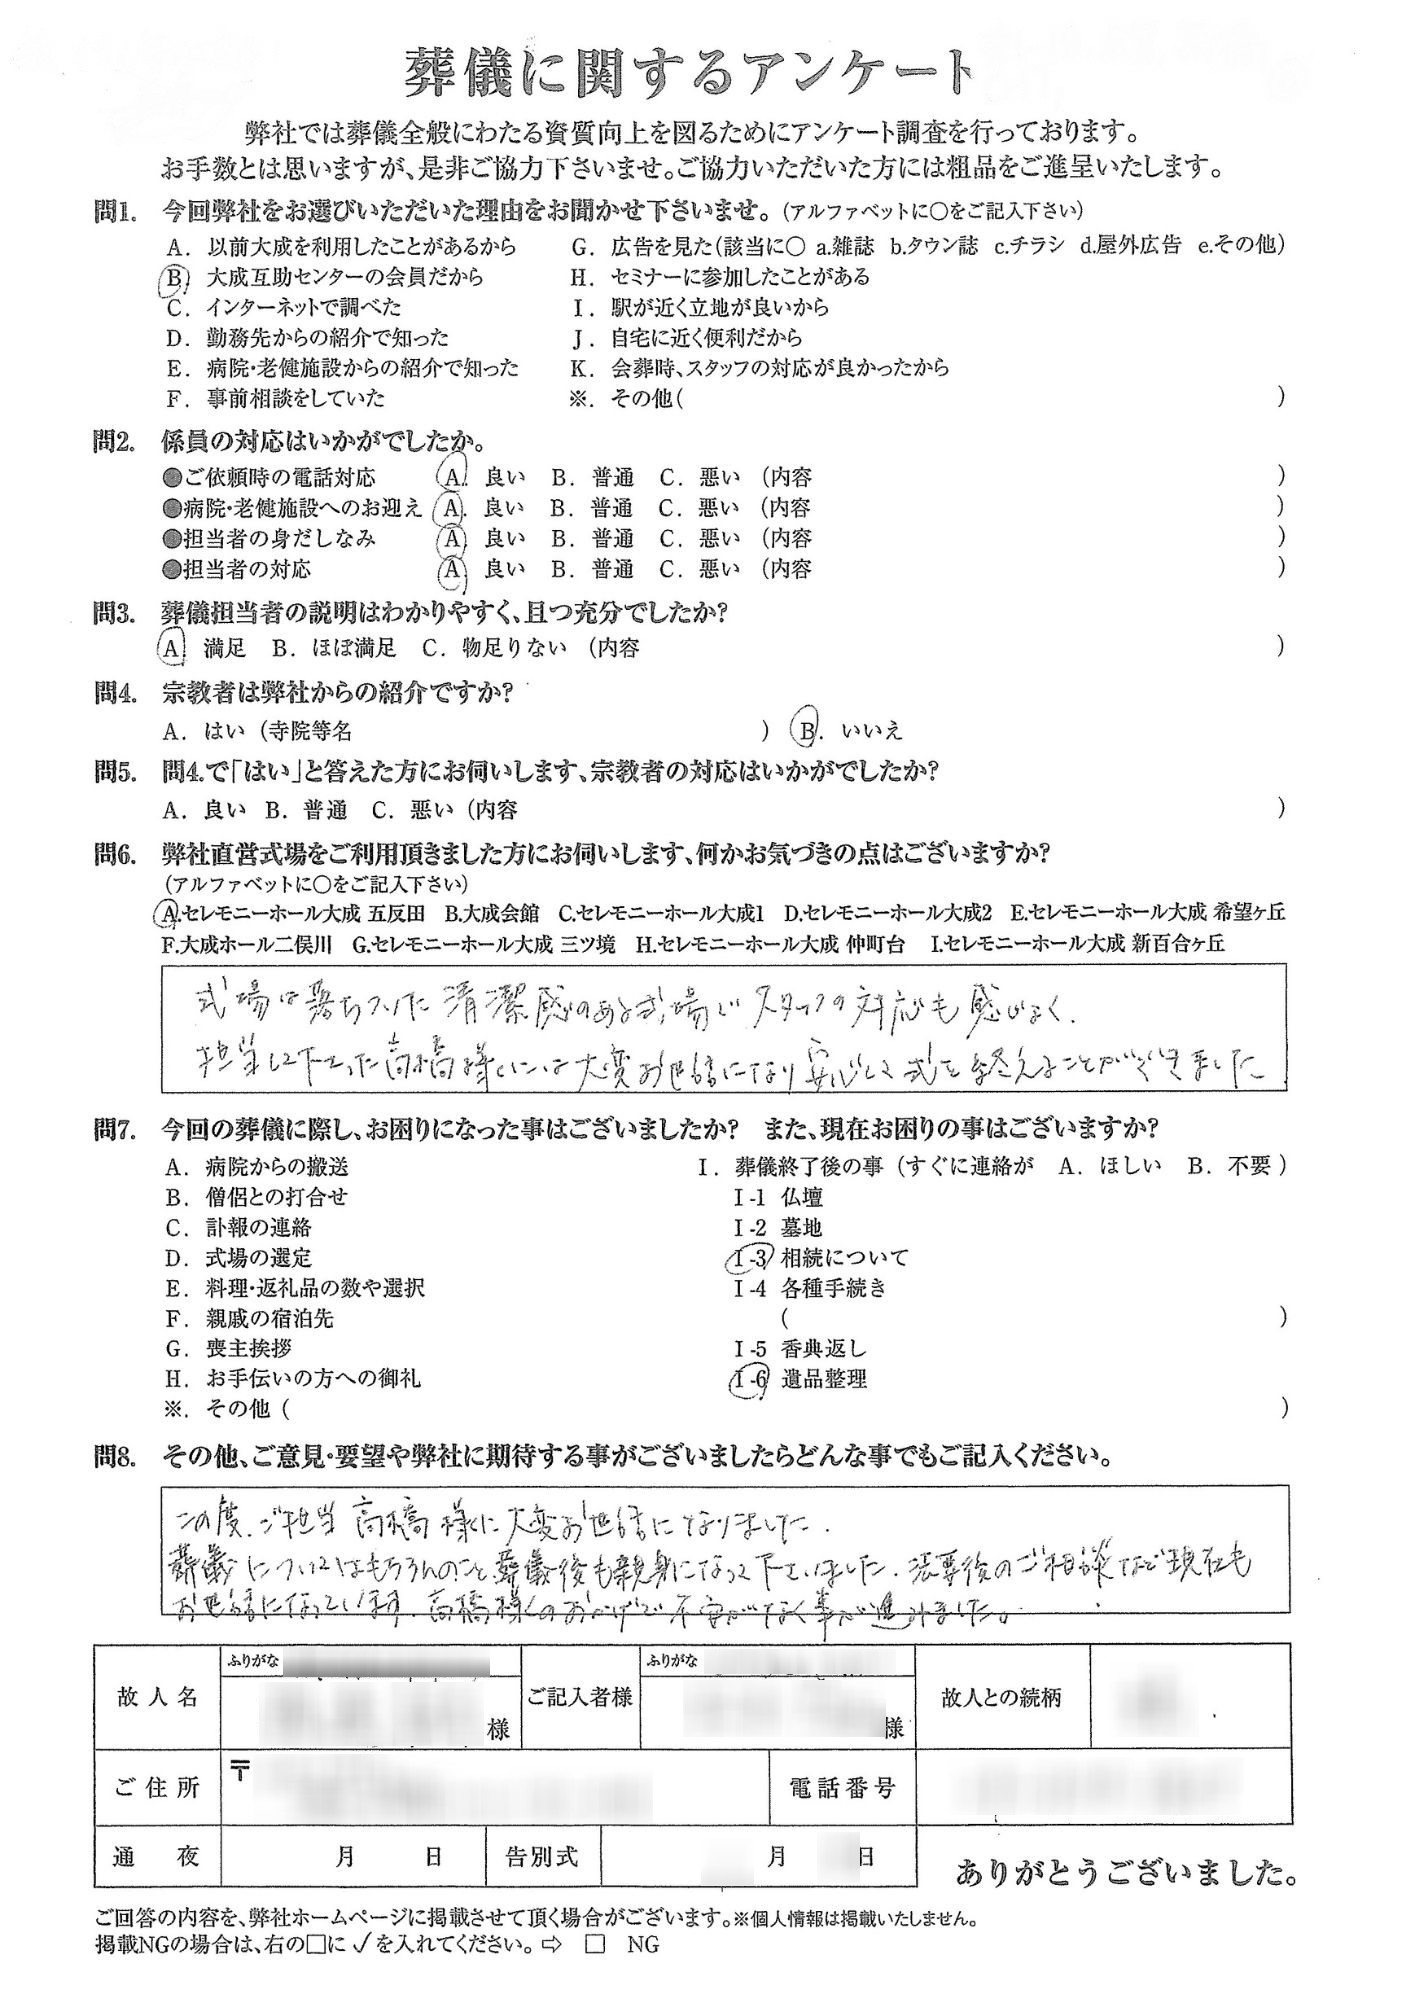 葬儀に関するアンケート
弊社では葬儀全般にわたる資質向上を図るためにアンケート調査を行っております。
お手数とは思いますが、是非ご協力下さいませ。ご協力いただいた方には粗品をご進呈いたします。
問1. 今回弊社をお選びいただいた理由をお聞かせ下さいませ。(アルファベットに〇をご記入下さい)
A. 以前大成を利用したことがあるから G. 広告を見た(該当に〇 a.雑誌 b.タウン誌 c.チラシ d.屋外広告 e.その他)
B. 大成互助センターの会員だから H. セミナーに参加したことがある
C. インターネットで調べた I. 駅が近く立地が良いから
D. 勤務先からの紹介で知った J. 自宅に近く便利だから
E. 病院・老健施設からの紹介で知った K. 会葬時、スタッフの対応が良かったから
F. 事前相談をしていた ※. その他( )
問2. 係員の対応はいかがでしたか。
●ご依頼時の電話対応 A. 良い B. 普通 C. 悪い (内容 )
●病院・老健施設へのお迎え A. 良い B. 普通 C. 悪い (内容 )
●担当者の身だしなみ A. 良い B. 普通 C. 悪い (内容 )
●担当者の対応 A. 良い B. 普通 C. 悪い (内容 )
問3. 葬儀担当者の説明はわかりやすく、且つ充分でしたか?
A. 満足 B. ほぼ満足 C. 物足りない (内容 )
問4. 宗教者は弊社からの紹介ですか?
A. はい (寺院等名 ) B. いいえ
問5. 問4.で「はい」と答えた方にお伺いします、宗教者の対応はいかがでしたか?
A. 良い B. 普通 C. 悪い (内容 )
問6. 弊社直営式場をご利用頂きました方にお伺いします、何かお気づきの点はございますか?
(アルファベットに〇をご記入下さい)
A.セレモニーホール大成 五反田 B.大成会館 C.セレモニーホール大成1 D.セレモニーホール大成2 E.セレモニーホール大成 希望ヶ丘
F.大成ホール二俣川 G.セレモニーホール大成 三ツ境 H.セレモニーホール大成 仲町台 I.セレモニーホール大成 新百合ヶ丘
式場は落ちついた清潔感のある式場で スタッフの対応も感じよく、
担当して下さった高橋様には大変お世話になり安心して式を終えることができました
問7. 今回の葬儀に際し、お困りになった事はございましたか? また、現在お困りの事はございますか?
A. 病院からの搬送 I. 葬儀終了後の事 (すぐに連絡が A. ほしい B. 不要 )
B. 僧侶との打合せ I-1 仏壇
C. 訃報の連絡 I-2 墓地
D. 式場の選定 I-3 相続について
E. 料理・返礼品の数や選択 I-4 各種手続き
F. 親戚の宿泊先 ( )
G. 喪主挨拶 I-5 香典返し
H. お手伝いの方への御礼 I-6 遺品整理
※. その他 ( )
問8. その他、ご意見・要望や弊社に期待する事がございましたらどんな事でもご記入ください。
この度、ご担当 高橋様に大変お世話になりました.
葬儀についてはもちろんのこと葬儀後も親身になって下さいました. 法要後のご相談など現在も
お世話になっています. 高橋様のおかげで不安がなく事が進みました。
故人名 ふりがな 様 ご記入者様 ふりがな 様 故人との続柄
ご住所 〒 電話番号
通夜 月 日 告別式 月 日
ありがとうございました。
ご回答の内容を、弊社ホームページに掲載させて頂く場合がございます。※個人情報は掲載いたしません。
掲載NGの場合は、右の□に✓を入れてください。⇨ □ NG